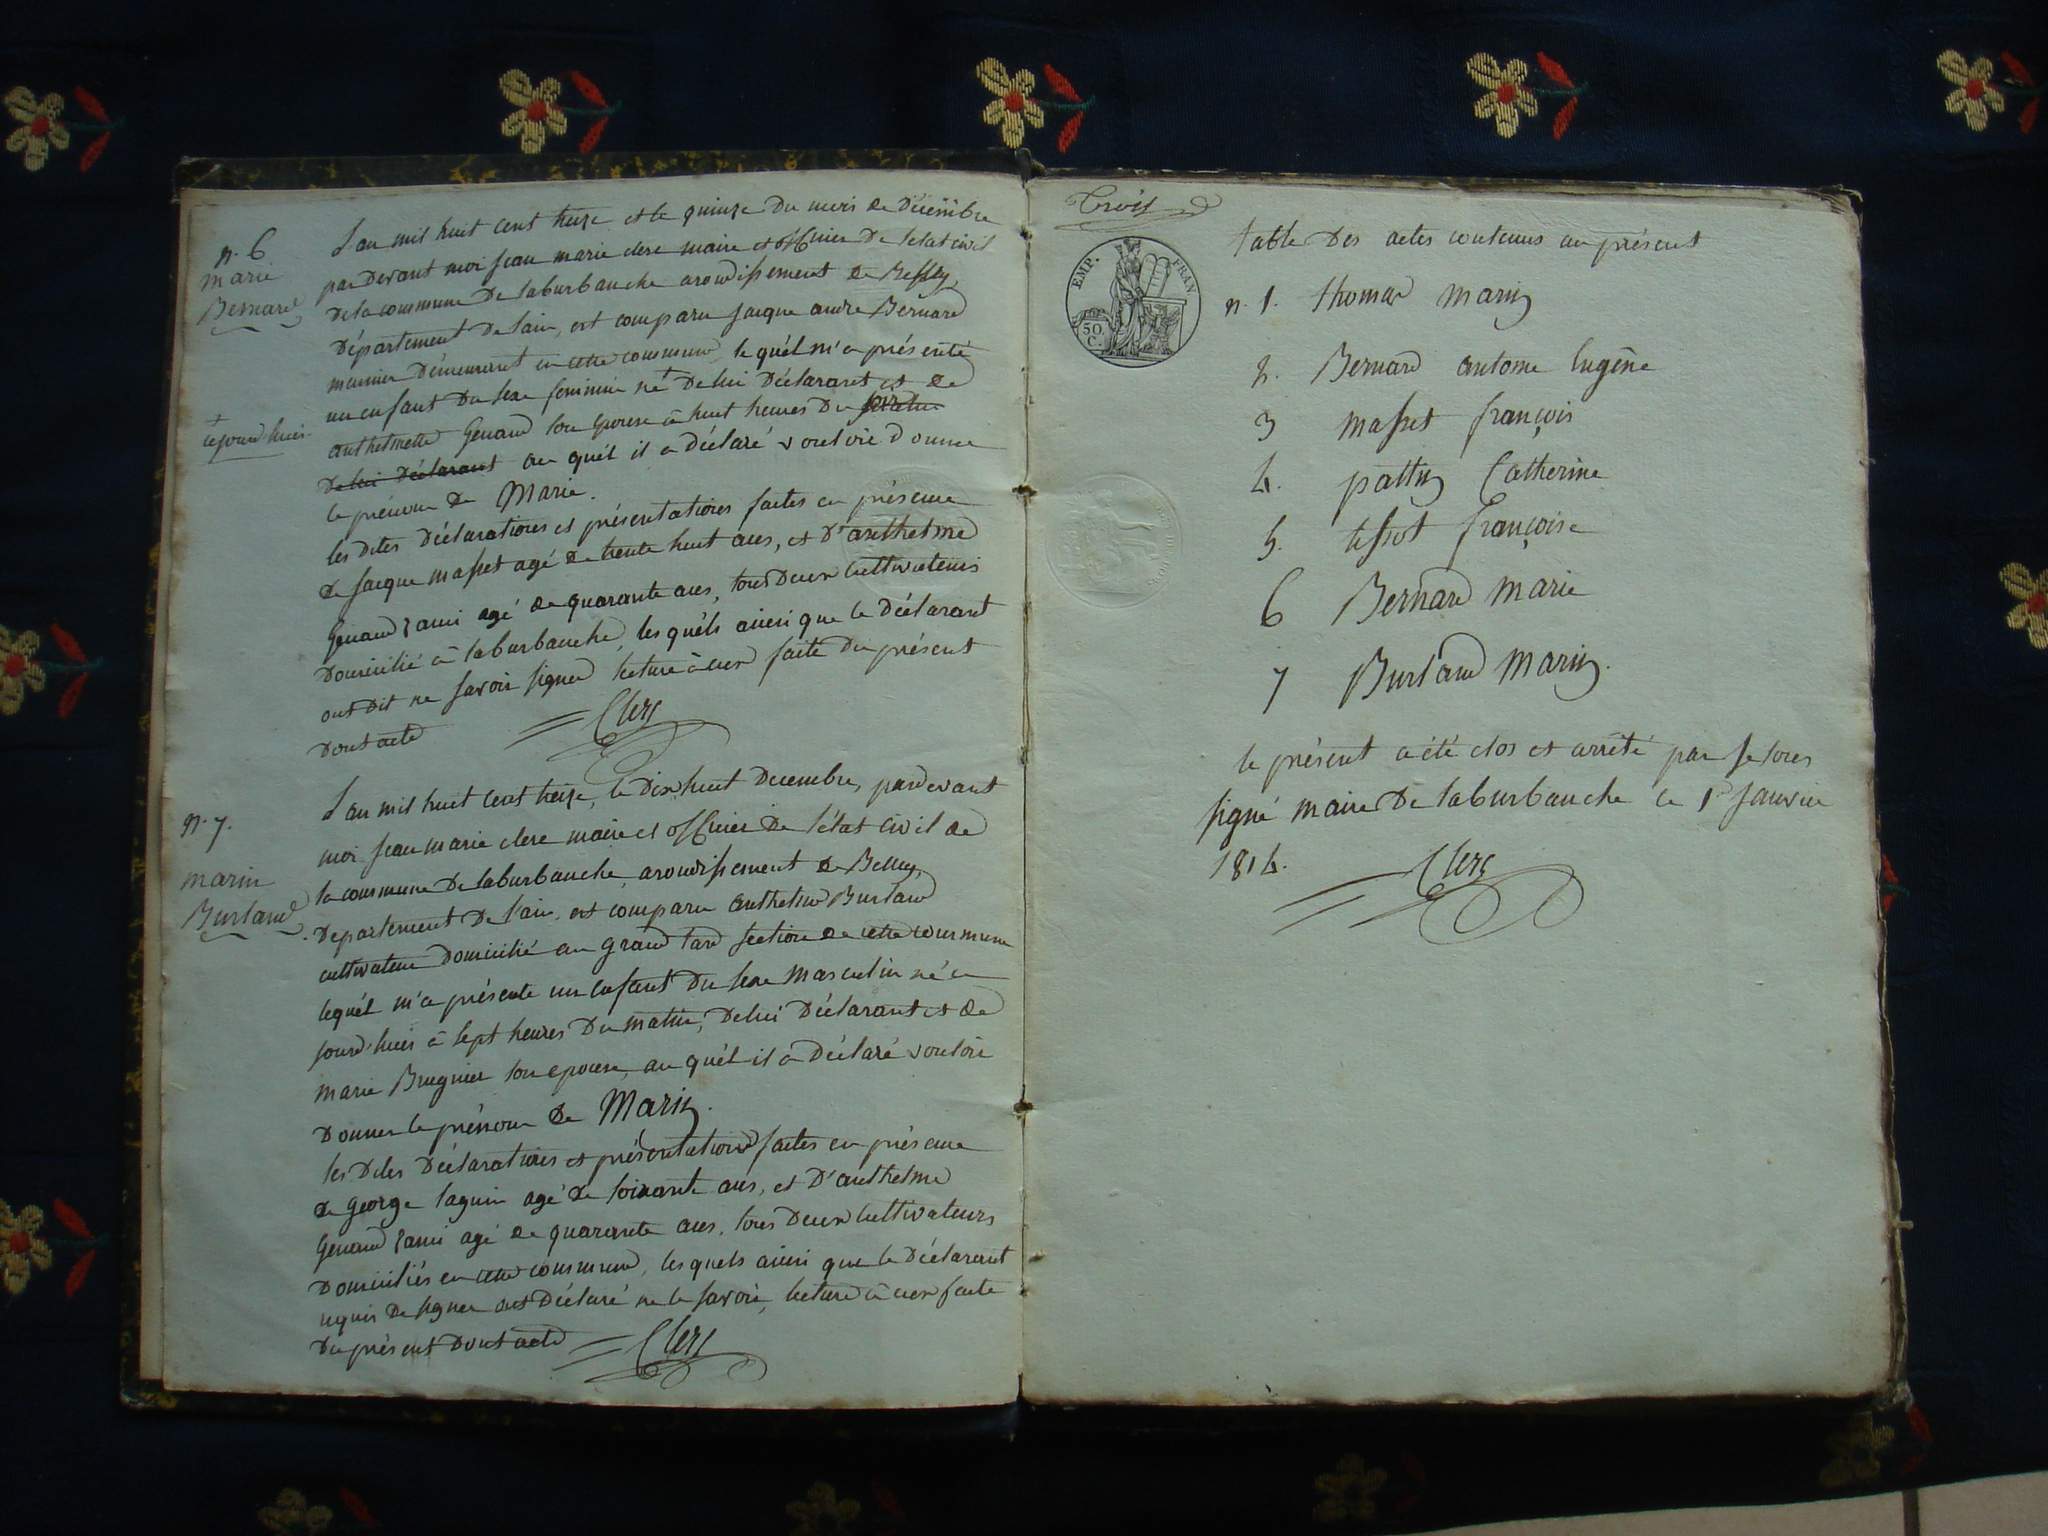 n. 6
marie
Bernard
+
cejourd'huis
L'an mil huit cent treize et le quinze du mois de Décembre
par devant moi jean marie clerc maire et officier de l'etat civil
de la commune de laburbanche, arondissement de Belley,
Département de l'ain, est comparu jacque andre Bernard
meunier démeurant en cette commune, le quél m'a présenté
un enfant du sexe feminin né + de lui Déclarant et de
anthelmette Genand son épouse à huit heures du
de lui déclarant au quél il a déclaré vouloir donner
le prénom de Marie.
les dites déclarations et présentations faites en présence
de jacque masset agé de trente huit ans, et d'anthelme
Genand agé de quarante ans, tous deux cultivateurs
Domicilié à laburbanche, les quéls ainsi que le déclarant
ont dit ne savoir signer lecture à eux faite du présent
dont acte
Clerc
n. 7.
marin
Burtand
L'an mil huit cent treize, le dix huit decembre, pardevant
moi jean marie clerc maire et officier de l'état civil de
la commune de laburbanche, arondissement de Belley,
Departement de l'ain, est comparu anthelme Burtand
cultivateur domicilié au grand tard section de cette commune
lequél m'a présenté un enfant du sexe masculin né ce
jourd'huis à sept heures du matin, de lui Déclarant et de
marie Brugnier son epouse, au quél il a déclaré vouloir
Donner le prénom de Marin.
les dites Déclarations et présentations faites en présence
de george laguin agé de soixante ans, et d'anthelme
Genand agé de quarante ans, tous deux cultivateurs
Domiciliés en cette commune, les quels ainsi que le déclarant
requis de signer ont déclaré ne le savoir, lecture à eux faite
du présent dont acte
Clerc
Trois
EMP. FRAN
50
C.
table des actes contenus au présent
n. 1. thomas marin
2. Bernard antome Eugène
3 masset françois
4. pattin Catherine
5. tissot françoise
6 Bernard Marie
7 Burtand Marin.
le présent a été clos et arrêté par
signé maire de laburbanche le 1er janvier
1814.
Clerc